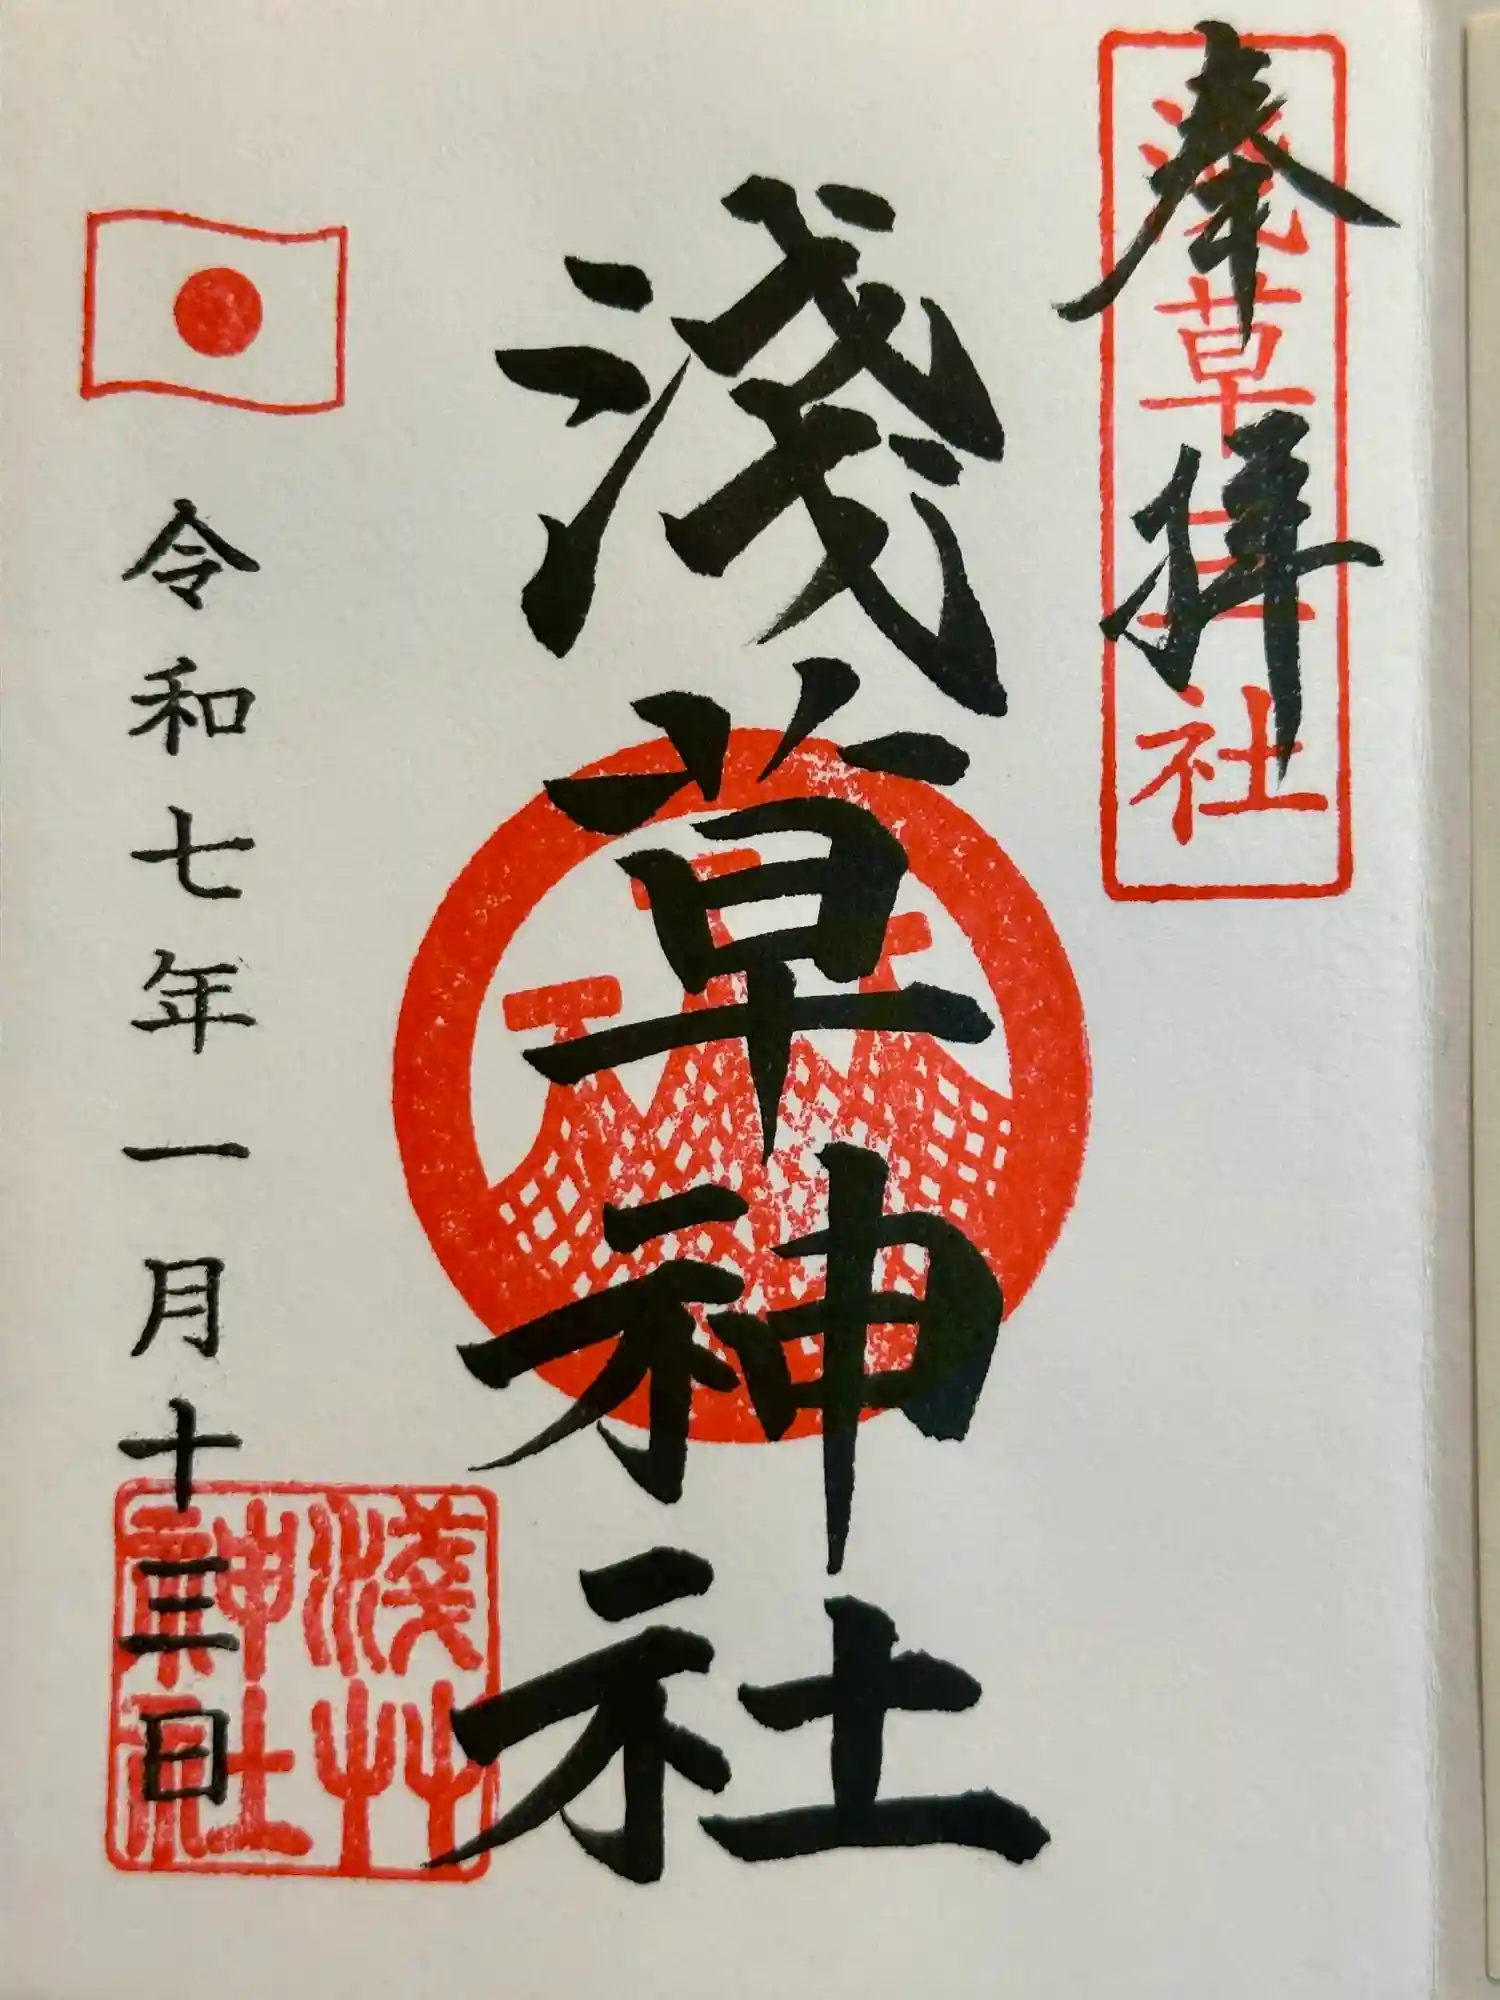 奉拝
淺草三社
淺草神社
令和七年一月十三日
淺草神社